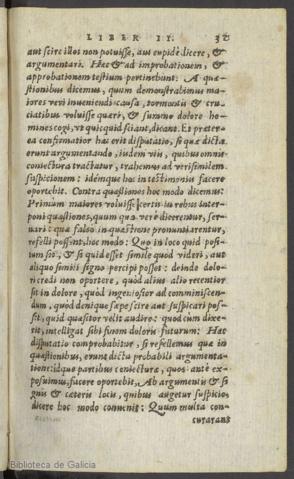 LIBER II.
aut scire illos non potuisse, aut cupidè dicere, &
argumentari. Hæc & ad improbationem, &
approbationem testium pertinebunt. A quæ-
stionibus dicemus, quum demonstrabimus ma-
iores veri inueniendi causa, tormentis & cru-
ciatibus voluisse quæri, & summo dolore ho-
mines cogi, vt quicquid sciant, dicant. Et præter-
ea confirmatior hæc erit disputatio, si quæ dicta
erunt argumentando, iisdem viis, quibus omnis
coniectura tractatur, trahemus ad verisimilem
suspicionem: idemque hoc in testimoniis facere
oportebit. Contra quæstiones hoc modo dicemus:
Primùm maiores voluisse certis in rebus inter-
poni quæstiones, quum quæ verè dicerentur, sci-
ri: quæ falso in quæstione pronuntiarentur,
refelli possent, hoc modo: Quo in loco quid posi-
tum sit, & si quid esset simile quod videri, aut
aliquo simili signo percipi posset: deinde dolo-
ri credi non oportere, quòd alius alio recentior
sit in dolore, quòd ingeniosior ad comminiscen-
dum, quòd denique sæpe scire aut suspicari pos-
sit, quid quæsitor velit audire: quod cum dixe-
rit, intelligat sibi finem doloris futurum: Hæc
disputatio comprobabitur, si refellemus quæ in
quæstionibus, erunt dicta probabili argumenta-
tione: idque partibus coniecturæ, quas antè ex-
posuimus, facere oportebit, Ab argumentis & si
gnis & cæteris locis, quibus augetur suspicio,
dicere hoc modo conuenit: Quum multa con-
currant
Biblioteca de Galicia